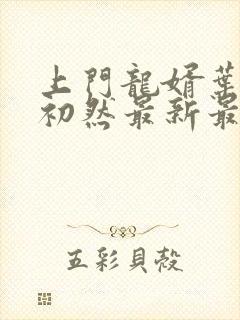 上門龍婿葉
初然最新最
五彩貝殼